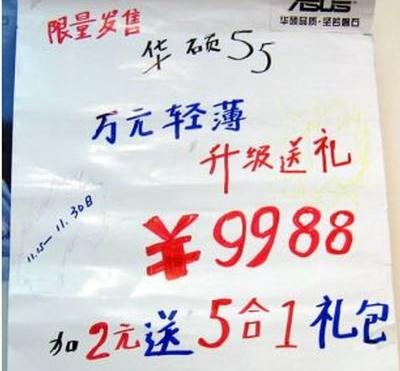 ASUS
华硕品质·坚若磐石
限量发售
华硕S5
万元轻薄
升级送礼
11.15—11.30日
¥9988
加2元送5合1礼包